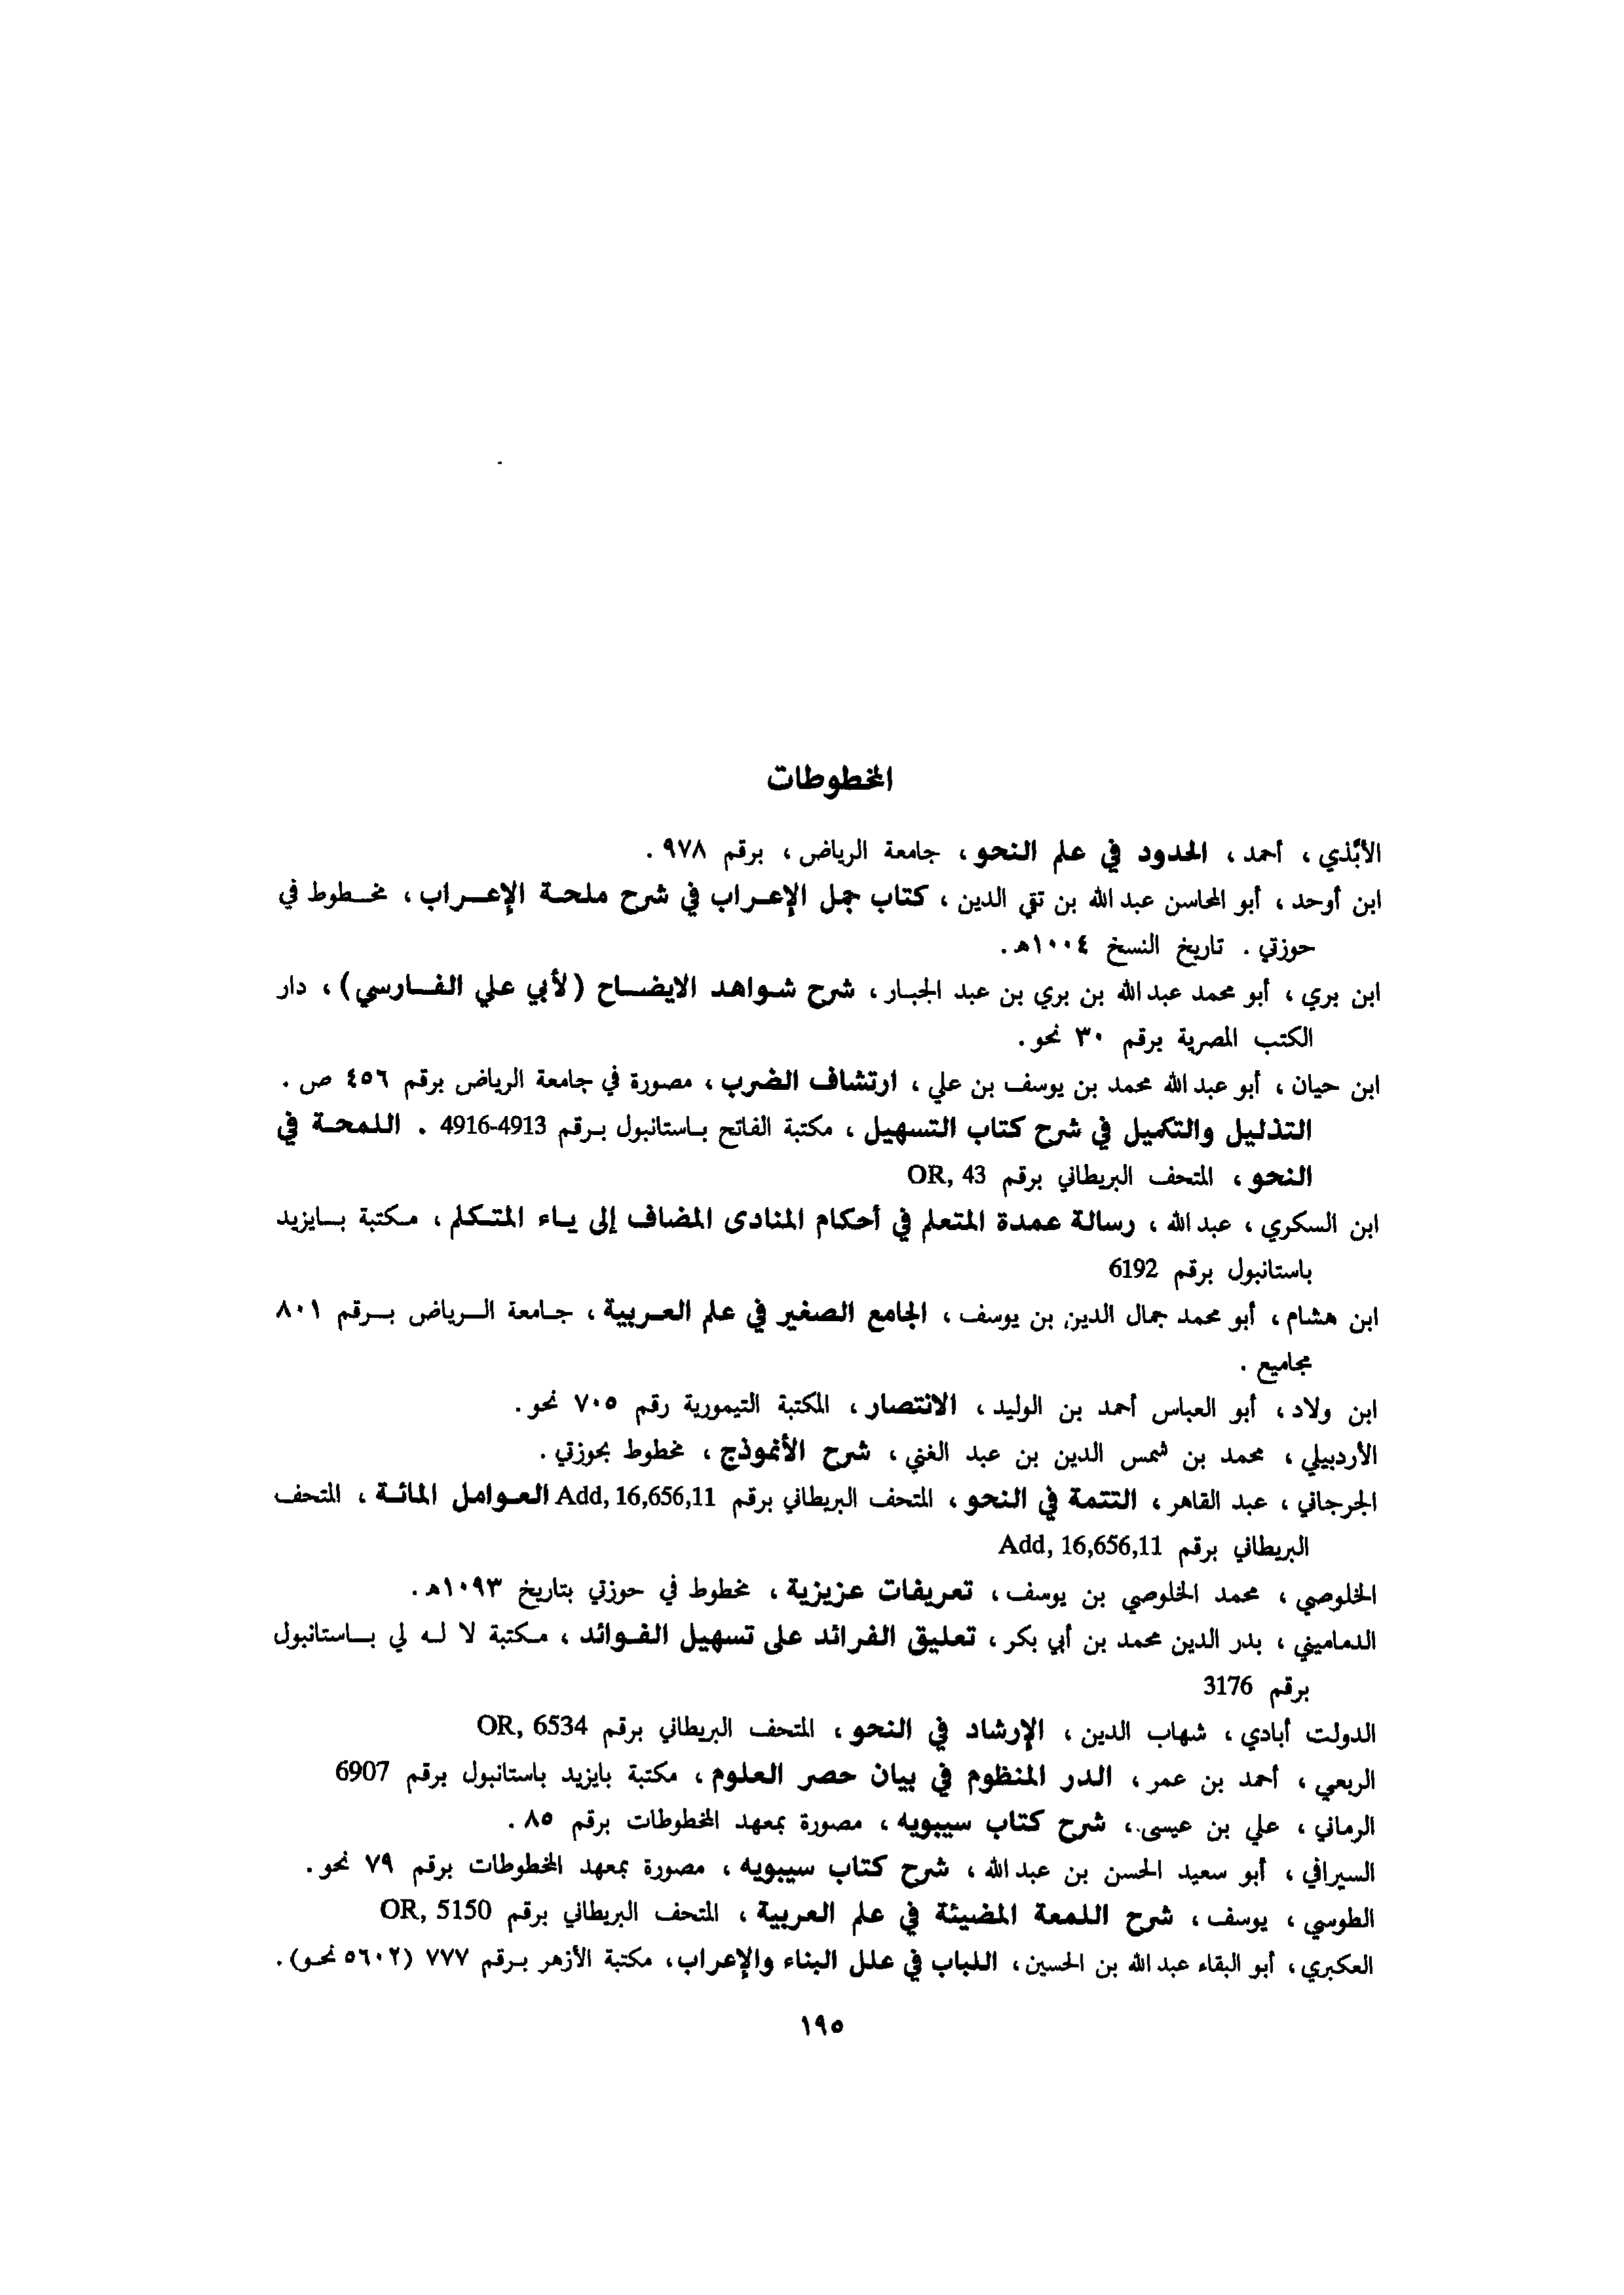 المخطوطات
الأبّذي ، أحمد ، الحدود في علم النحو ، جامعة الرياض ، برقم ٩٧٨ .
ابن أوحد ، أبو المحاسن عبد الله بن تقي الدين ، كتاب جمل الإعراب في شرح ملحة الإعراب ، مخطوط في
حوزتي . تاريخ النسخ ١٠٠٤هـ .
ابن بري ، أبو محمد عبد الله بن بري بن عبد الجبار ، شرح شواهد الايضاح (لأبي علي الفارسي) ، دار
الكتب المصرية برقم ٣٠ نحو .
ابن حيان ، أبو عبد الله محمد بن يوسف بن علي ، ارتشاف الضرب ، مصورة في جامعة الرياض برقم ٤٥٦ ص .
التذليل والتكميل في شرح كتاب التسهيل ، مكتبة الفاتح باستانبول برقم 4913-4916 . اللمحة في
النحو ، المتحف البريطاني برقم OR, 43
ابن السكري ، عبد الله ، رسالة عمدة المتعلم في أحكام المنادى المضاف إلى ياء المتكلم ، مكتبة بايزيد
باستانبول برقم 6192
ابن هشام ، أبو محمد جمال الدين بن يوسف ، الجامع الصغير في علم العربية ، جامعة الرياض برقم ٨٠١
مجاميع .
ابن ولاد ، أبو العباس أحمد بن الوليد ، الانتصار ، المكتبة التيمورية رقم ٧٠٥ نحو .
الأردبيلي ، محمد بن شمس الدين بن عبد الغني ، شرح الأنموذج ، مخطوط بحوزتي .
الجرجاني ، عبد القاهر ، التتمة في النحو ، المتحف البريطاني برقم Add, 16,656,11 العوامل المائة ، المتحف
البريطاني برقم Add, 16,656,11
الخلوصي ، محمد الخلوصي بن يوسف ، تعريفات عزيزية ، مخطوط في حوزتي بتاريخ ١٠٩٣هـ .
الدماميني ، بدر الدين محمد بن أبي بكر ، تعليق الفرائد على تسهيل الفوائد ، مكتبة لا له لي باستانبول
برقم 3176
الدولت أبادي ، شهاب الدين ، الإرشاد في النحو ، المتحف البريطاني برقم OR, 6534
الربعي ، أحمد بن عمر ، الدر المنظوم في بيان حصر العلوم ، مكتبة بايزيد باستانبول برقم 6907
الرماني ، علي بن عيسى ، شرح كتاب سيبويه ، مصورة بمعهد المخطوطات برقم ٨٥ .
السيرافي ، أبو سعيد الحسن بن عبد الله ، شرح كتاب سيبويه ، مصورة بمعهد المخطوطات برقم ٧٩ نحو .
الطوسي ، يوسف ، شرح اللمعة المضيئة في علم العربية ، المتحف البريطاني برقم OR, 5150
العكبري ، أبو البقاء عبد الله بن الحسين ، اللباب في علل البناء والإعراب ، مكتبة الأزهر برقم ٧٧٧ (٥٦٠٢ نحو) .
١٩٥